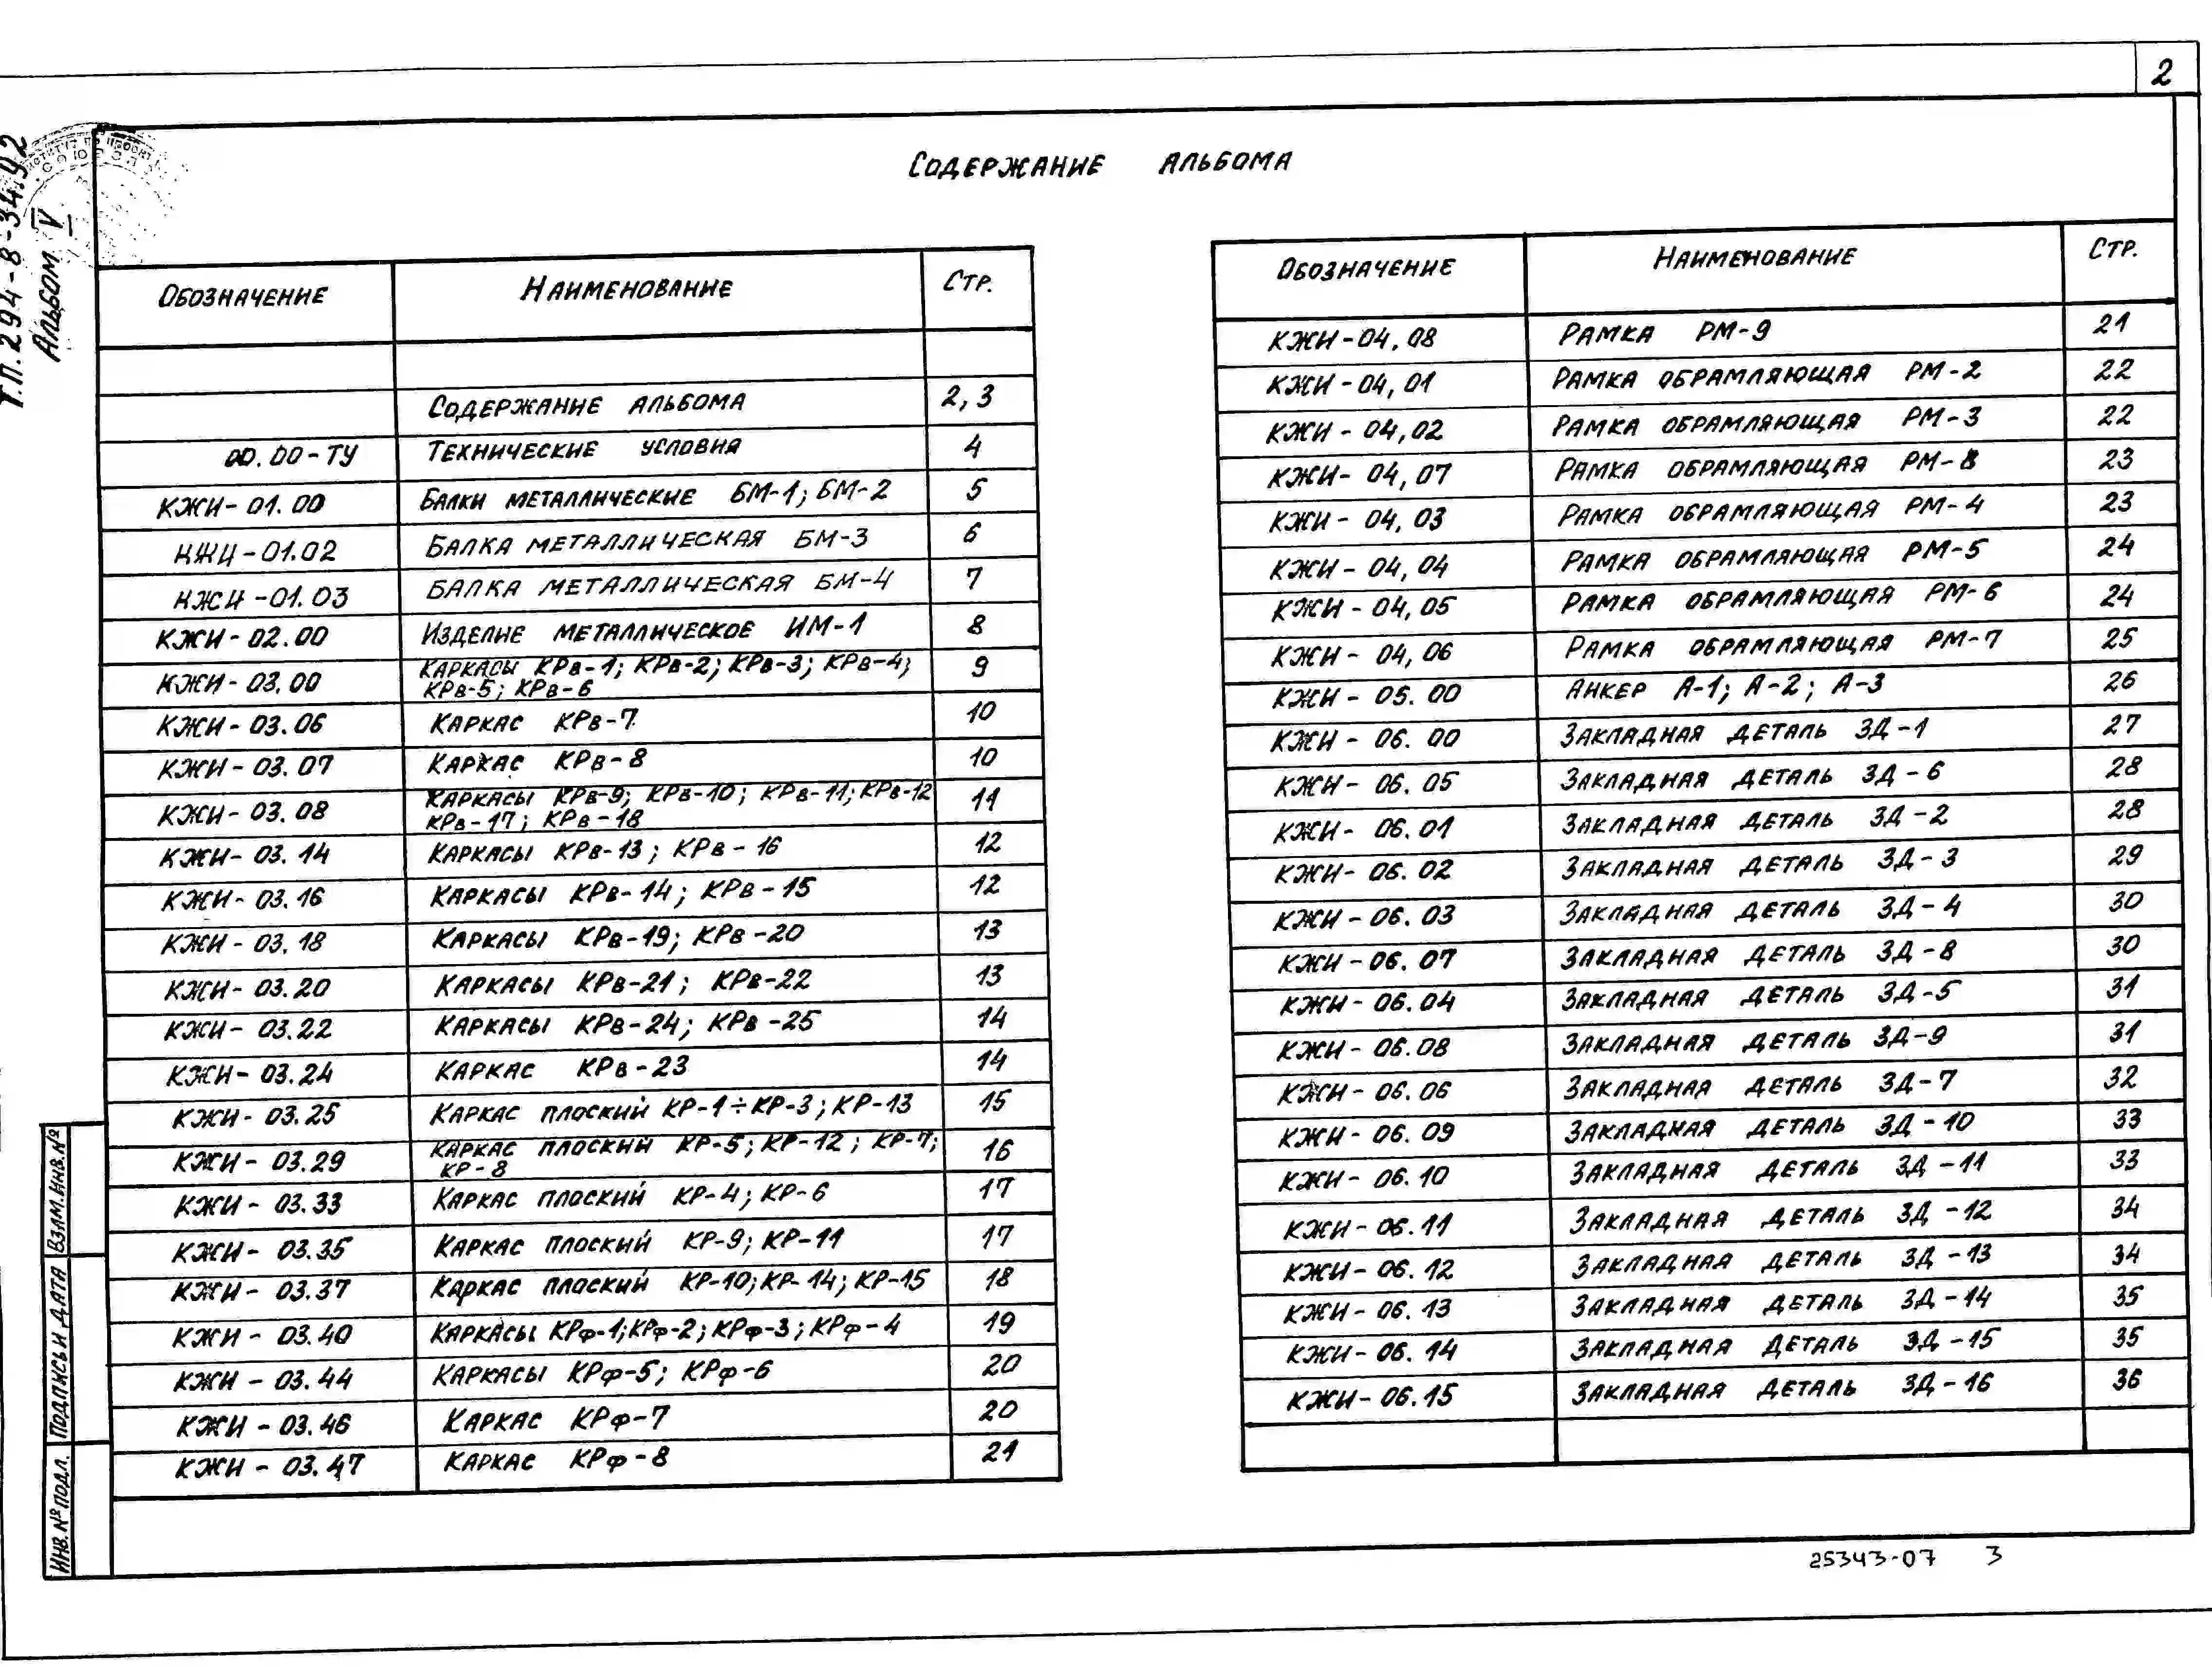 2
Т.П. 294-8-34.92
Альбом IV
Содержание альбома
Обозначение Наименование Стр.
Содержание альбома 2,3
00.00-ТУ Технические условия 4
КЖИ-01.00 Балки металлические БМ-1; БМ-2 5
КЖИ-01.02 Балка металлическая БМ-3 6
КЖИ-01.03 Балка металлическая БМ-4 7
КЖИ-02.00 Изделие металлическое ИМ-1 8
КЖИ-03.00 Каркасы КРв-1; КРв-2; КРв-3; КРв-4;
КРв-5; КРв-6 9
КЖИ-03.06 Каркас КРв-7 10
КЖИ-03.07 Каркас КРв-8 10
КЖИ-03.08 Каркасы КРв-9; КРв-10; КРв-11; КРв-12
КРв-17; КРв-18 11
КЖИ-03.14 Каркасы КРв-13; КРв-16 12
КЖИ-03.16 Каркасы КРв-14; КРв-15 12
КЖИ-03.18 Каркасы КРв-19; КРв-20 13
КЖИ-03.20 Каркасы КРв-21; КРв-22 13
КЖИ-03.22 Каркасы КРв-24; КРв-25 14
КЖИ-03.24 Каркас КРв-23 14
КЖИ-03.25 Каркас плоский КР-1÷КР-3; КР-13 15
КЖИ-03.29 Каркас плоский КР-5; КР-12; КР-7;
КР-8 16
КЖИ-03.33 Каркас плоский КР-4; КР-6 17
КЖИ-03.35 Каркас плоский КР-9; КР-11 17
КЖИ-03.37 Каркас плоский КР-10; КР-14; КР-15 18
КЖИ-03.40 Каркасы КРф-1; КРф-2; КРф-3; КРф-4 19
КЖИ-03.44 Каркасы КРф-5; КРф-6 20
КЖИ-03.46 Каркас КРф-7 20
КЖИ-03.47 Каркас КРф-8 21
Обозначение Наименование Стр.
КЖИ-04.08 Рамка РМ-9 21
КЖИ-04,01 Рамка обрамляющая РМ-2 22
КЖИ-04,02 Рамка обрамляющая РМ-3 22
КЖИ-04,07 Рамка обрамляющая РМ-8 23
КЖИ-04,03 Рамка обрамляющая РМ-4 23
КЖИ-04,04 Рамка обрамляющая РМ-5 24
КЖИ-04,05 Рамка обрамляющая РМ-6 24
КЖИ-04,06 Рамка обрамляющая РМ-7 25
КЖИ-05.00 Анкер А-1; А-2; А-3 26
КЖИ-06.00 Закладная деталь ЗД-1 27
КЖИ-06.05 Закладная деталь ЗД-6 28
КЖИ-06.01 Закладная деталь ЗД-2 28
КЖИ-06.02 Закладная деталь ЗД-3 29
КЖИ-06.03 Закладная деталь ЗД-4 30
КЖИ-06.07 Закладная деталь ЗД-8 30
КЖИ-06.04 Закладная деталь ЗД-5 31
КЖИ-06.08 Закладная деталь ЗД-9 31
КЖИ-06.06 Закладная деталь ЗД-7 32
КЖИ-06.09 Закладная деталь ЗД-10 33
КЖИ-06.10 Закладная деталь ЗД-11 33
КЖИ-06.11 Закладная деталь ЗД-12 34
КЖИ-06.12 Закладная деталь ЗД-13 34
КЖИ-06.13 Закладная деталь ЗД-14 35
КЖИ-06.14 Закладная деталь ЗД-15 35
КЖИ-06.15 Закладная деталь ЗД-16 36
Инв. № подл.
Подпись и дата
Взам. инв. №
25343-07 3